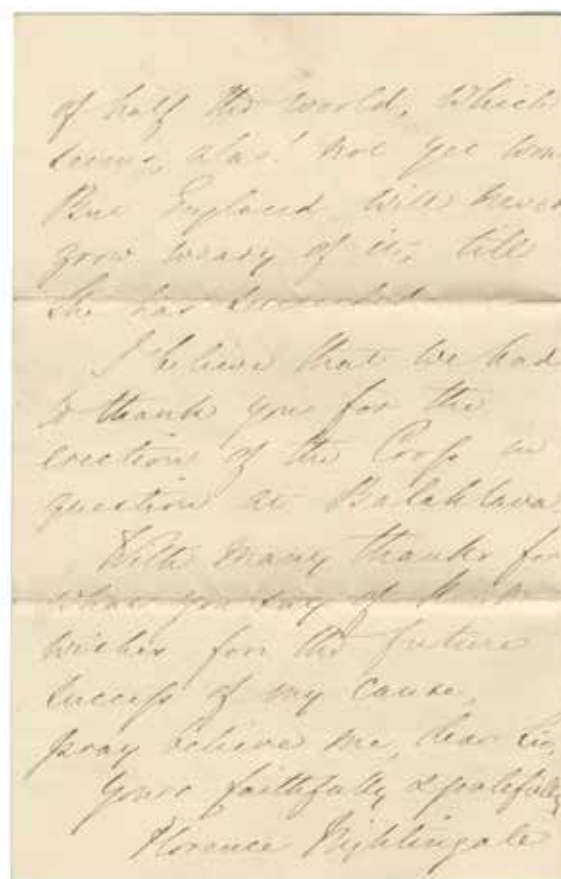 of half the world, which
seems, alas! not yet won
But England will never
grow weary of it, till
she has succeeded.
I believe that we had
to thank you for the
erection of the Cross in
question at Balaklava
With many thanks for
what you say of kind
wishes for the future
success of my cause,
pray believe me, dear Sir,
Yours faithfully & gratefully
Florence Nightingale